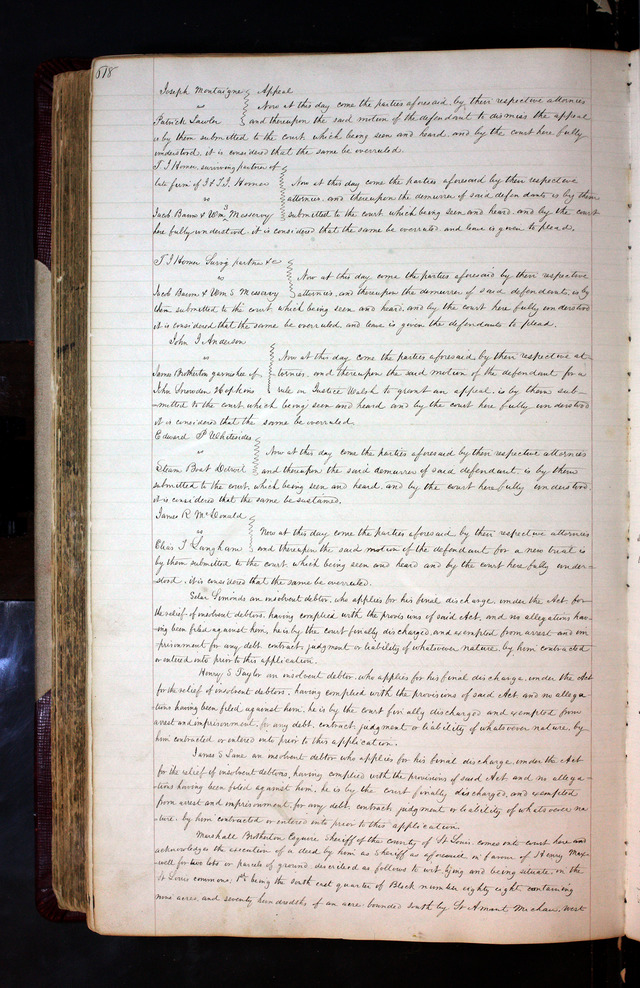 518
Joseph Montaigne } Appeal
vs } Now at this day come the parties aforesaid, by their respective attornies
Patrick Lawler } and thereupon the said motion of the defendant to dismiss the appeal
is by them submitted to the court, which being seen and heard, and by the court here fully
understood, it is considered that the same be overruled.
T. J Homer, surviving partner of
late firm of J & T. J. Homer } Now at this day come the parties aforesaid by their respective
vs } attornies, and thereupon the demurrer of said defendants is by them
Jacob Baum & Wm S Messervy } submitted to the court, which being seen and heard, and by the court
here fully understood, it is considered that the same be overruled and leave is given to plead.
T. J Homer Survg partner &c
vs } Now at this day come the parties aforesaid by their respective
Jacob Baum & Wm S Messervy } attornies, and thereupon the demurrer of said defendants, is by
them submitted to the court, which being seen and heard, and by the court here fully understood
it is considered that the same be overruled, and leave is given the defendants to plead.
John J Anderson
vs } Now at this day come the parties aforesaid by their respective at-
James Brotherton garnishee of } tornies, and thereupon the said motion of the defendant for a
John Snowden Hopkins } rule on Justice Walsh to grant an appeal, is by them sub-
mitted to the court, which being seen and heard and by the court here fully understood
it is considered that the same be overruled.
Edward P Whitesides
vs } Now at this day come the parties aforesaid by their respective attornies
Steam Boat Detroit } and thereupon the said demurrer of said defendant, is by them
submitted to the court, which being seen and heard, and by the court here fully understood
it is considered that the same be sustained.
James R McDonald
vs } Now at this day come the parties aforesaid by their respective attornies
Elias T Langham } and thereupon the said motion of the defendant for a new trial is
by them submitted to the court, which being seen and heard and by the court here fully under-
stood, it is considered that the same be overruled.
Edar Simonds an insolvent debtor, who applies for his final discharge, under the Act for
the relief of insolvent debtors, having complied with the provisions of said Act, and no allegations hav-
ing been filed against him, he is by the court finally discharged, and exempted from arrest and im
prisonment for any debt, contract, judgment or liability of whatsoever nature, by him contracted
or entered into prior to this application.
Henry S Taylor an insolvent debtor, who applies for his final discharge, under the Act
for the relief of insolvent debtors, having complied with the provisions of said Act and no allega-
tions having been filed against him, he is by the court finally discharged and exempted from
arrest and imprisonment, for any debt, contract, judgment or liability of whatsoever nature, by
him contracted or entered into prior to this application.
James S Lane an insolvent debtor who applies for his final discharge, under the Act
for the relief of insolvent debtors, having complied with the provisions of said Act and no allega-
tions having been filed against him, he is by the court finally discharged, and exempted
from arrest and imprisonment, for any debt, contract, judgment or liability of whatsoever na
ture, by him contracted or entered into prior to this application.
Marshall Brotherton Esquire Sheriff of the county of St Louis comes into court here and
acknowledges the execution of a deed by him as Sheriff as aforesaid in favour of Henry Max-
well for two lots or parcels of ground described as follows to wit, lying and being situate in the
St Louis commons, 1st being the south east quarter of Block number eighty eight containing
nine acres, and seventy hundredths of an acre, bounded south by St Amant Michau, west